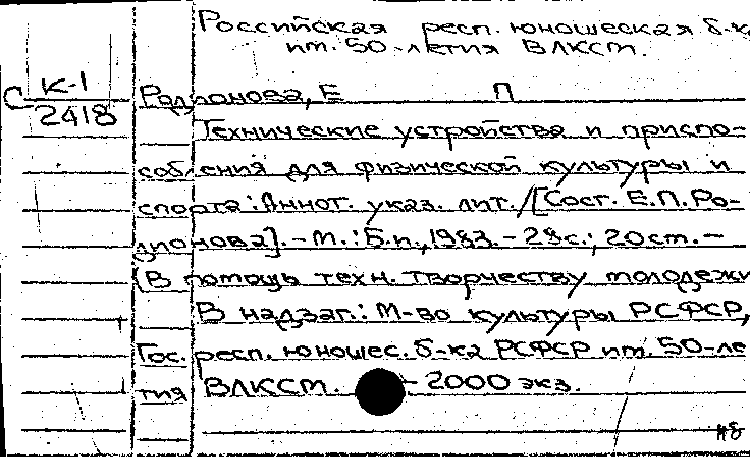 Российская респ. юношеская б-ка
им. 50-летия ВЛКСМ.
К-1
С
2418
Родионова, Е П
Технические устройства и приспо-
собления для физической культуры и
спорта: Аннот. указ. лит. / [Сост. Е.П. Ро-
дионова]. - М.: Б.и., 1983. - 28 с.; 20 см. -
(В помощь техн. творчеству молодежи
В надзаг.: М-во культуры РСФСР,
Гос. респ. юношес. б-ка РСФСР им. 50-ле
тия ВЛКСМ. - 2000 экз.